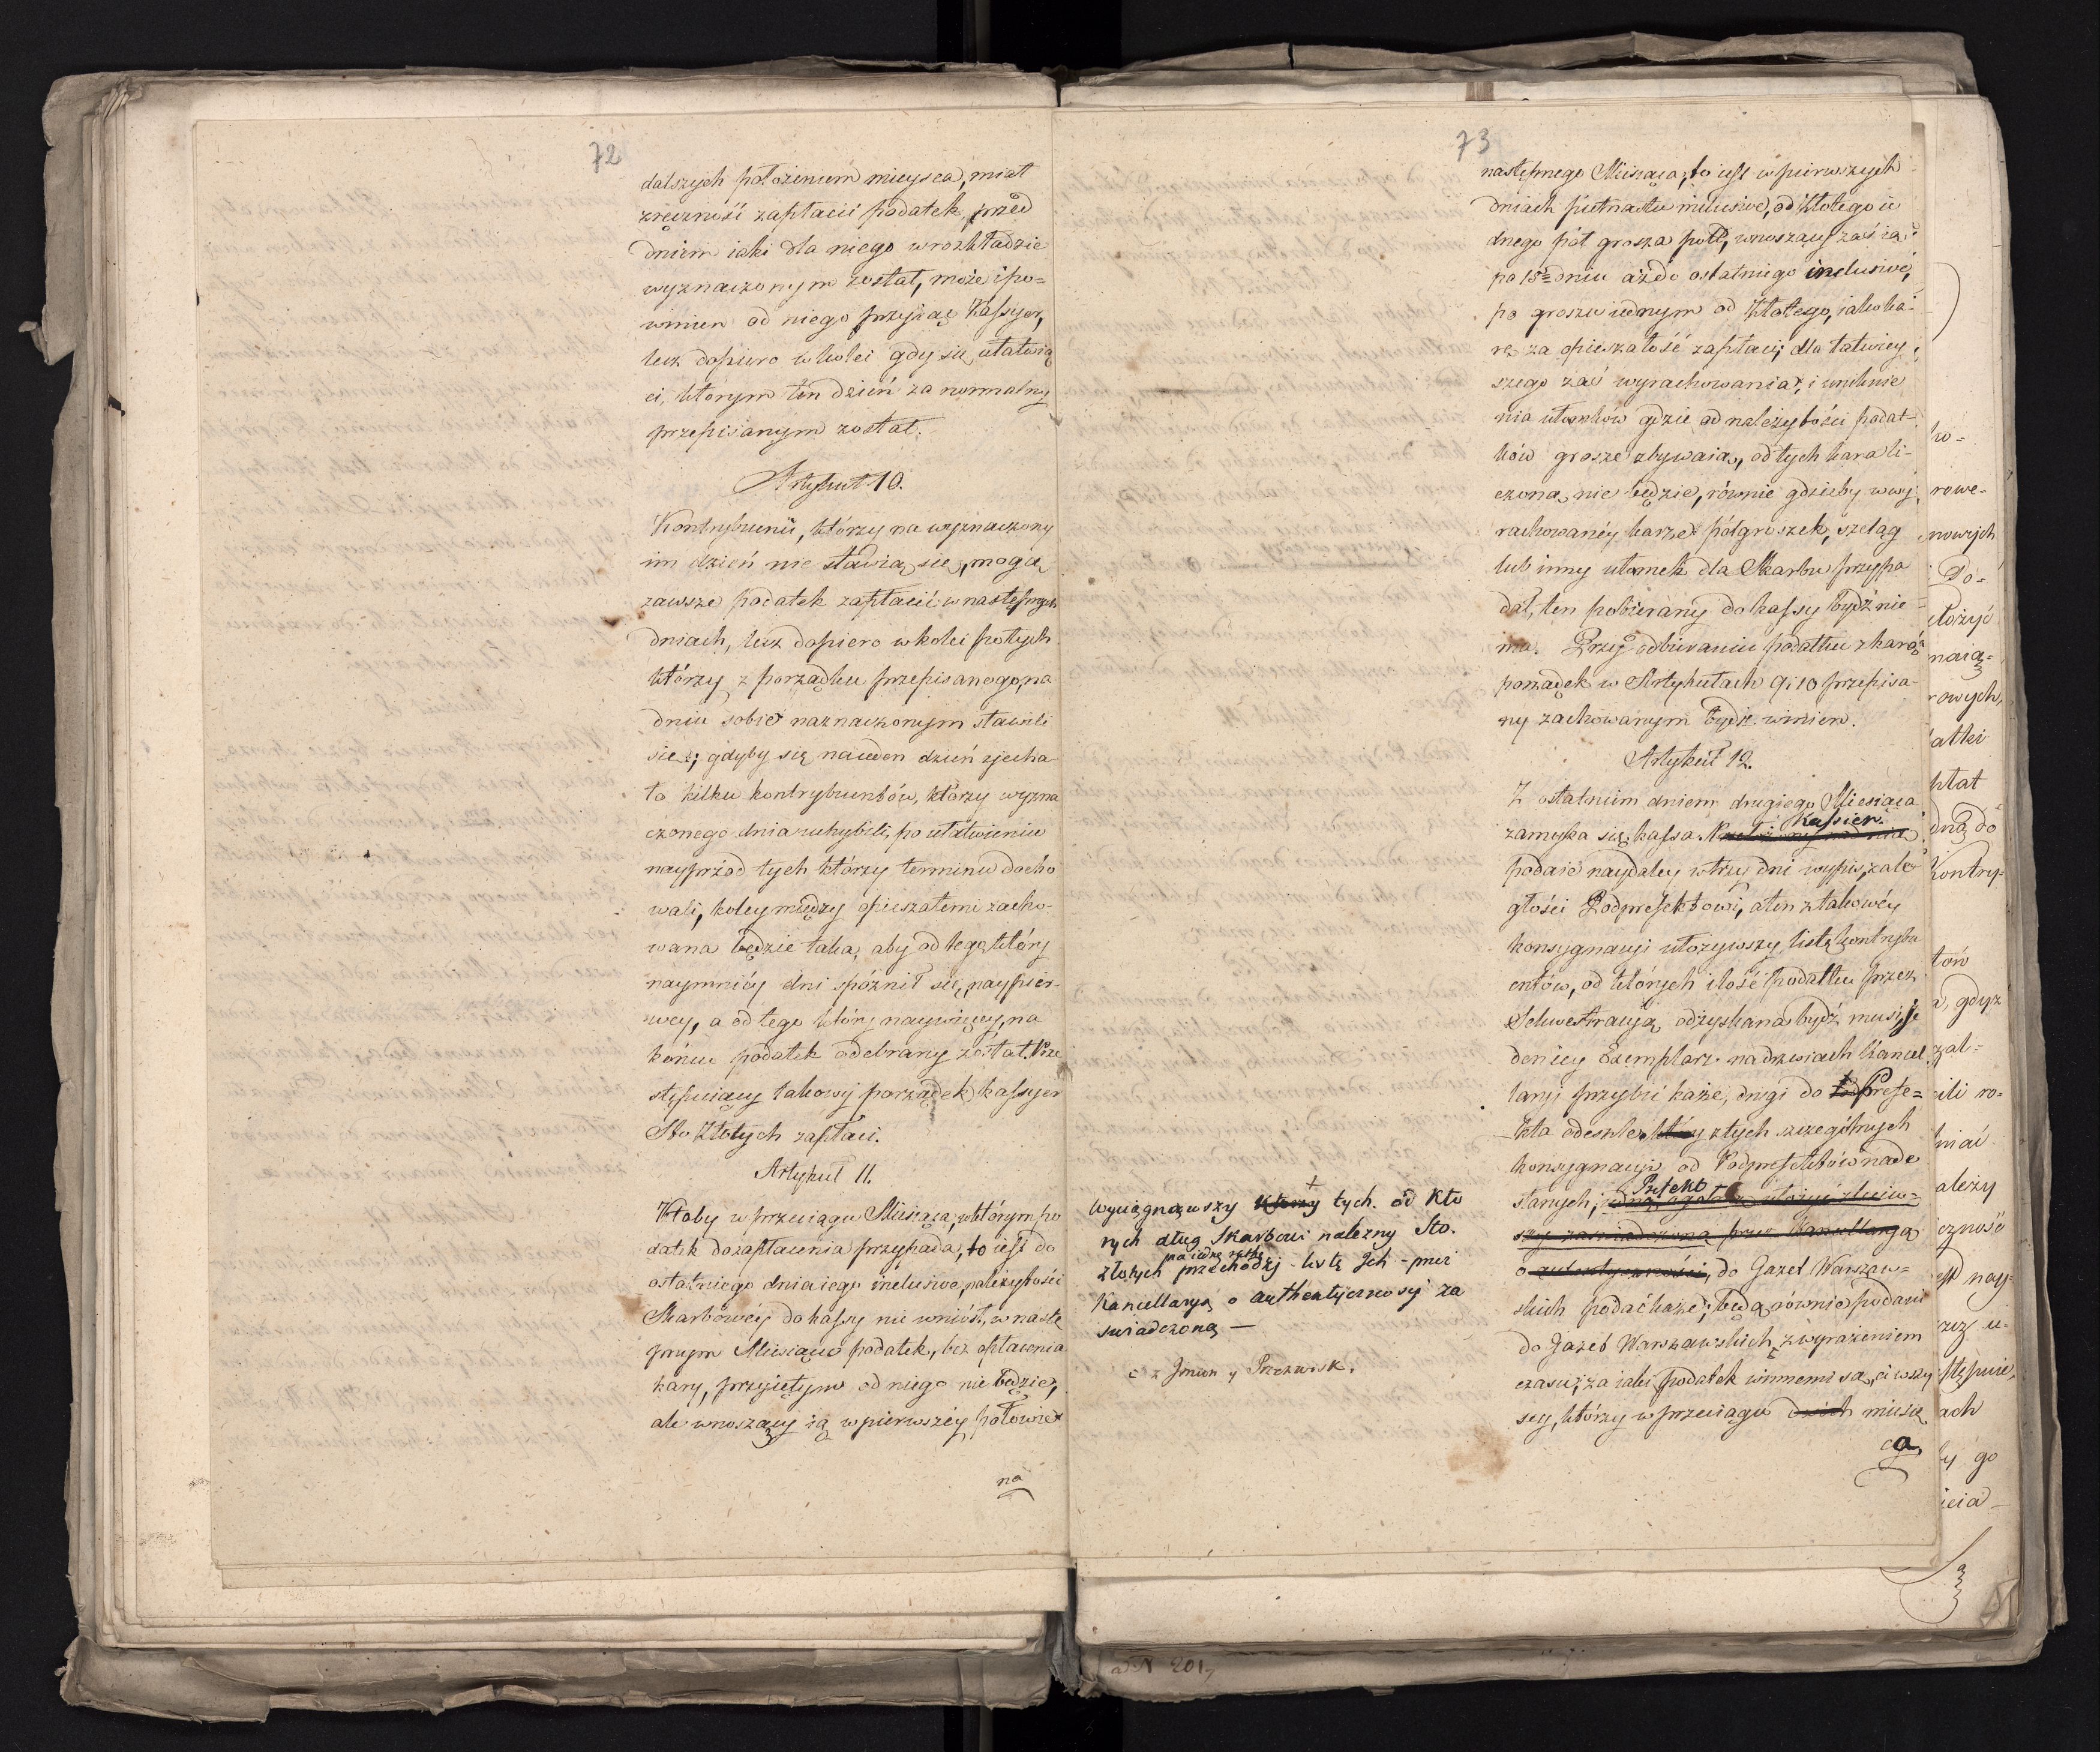 72
dalszych położeniem mieysca, miał
zręczność zapłacić podatek, przed
dniem iaki dla niego w rozkładzie
wyznaczonym został, może i po=
winien od niego przyiąć Kassyer,
lecz dopiero w kolei gdy się ułatwią
ci, którym ten dzień za normalny
przepisanym został.
Artykuł 10.
Kontrybuenci, którzy na wyznaczony
im dzień nie stawią się, mogą
zawsze podatek zapłacić w następnych
dniach, lecz dopiero w kolei po tych
którzy z porządku przepisanego, na
dniu sobie naznaczonym stawili
się; gdyby się na ieden dzień ziecha
ło kilku kontrybuentów, którzy wyzna
czonego dnia uchybili, po ułatwieniu
nayprzód tych którzy terminu docho
wali, koley między opieszałemi zacho-
wana będzie taka, aby od tego, który
naymniéy dni spóźnił się, naypier-
wey, a od tego który naywięcey, na
końcu podatek odebrany został. Prze
stępuiący takowy porządek, kassyer
Sto Złotych zapłaci.
Artykuł 11.
Ktoby w przeciągu Miesiąca, w którym po
datek do zapłacenia przypada, to iest do
ostatniego dnia iego inclusive, należytości
Skarbowéy do kassy nie wniósł, w nastę
pnym Miesiącu podatek, bez opłacenia
kary, przyiętym od niego nie będzie,
ale wnoszący ią w pierwszéy połowie
na
73
następnego Miesiąca, to iest w pierwszych
dniach pietnastu inclusive, od Złotego ie
dnego pół grosza poll, wnoszący zaś ią
po 15m dniu aż do ostatniego inclusive,
po groszu iednym od Złotego, iako ka-
rę za opieszałość zapłaci; dla łatwiey
szego zaś wyrachowania, i uniknie
nia ułomków gdzie od należytości podat-
ków grosze zbywaią, od tych kara li-
czona nie będzie, równie gdzieby w wy
rachowanéy karze półgroszek, szeląg
lub inny ułomek dla Skarbu przypa
dał, ten pobierany do kassy bydź nie
ma. Przy odbieraniu podatku z karą
porządek w Artykułach 9 i 10 przepisa-
ny zachowanym bydź winien.
Artykuł 12.
Z ostatnim dniem drugiego Miesiąca
Kassier.
zamyka się kassa
podaie naydaley w trzy dni wypis zale
głości Podprefektowi, a ten z takowéy
konsygnacyi ułożywszy listę kontrybu
entów, od których ilość podatku przez
Sekwestracyą odzyskana bydź musi, ie
den iey Exemplarz na drzwiach Kancel
laryi przybić każe, drugi do Prefe=
kta odeszle, który z tych szczególnych
konsygnacyi od Podprefektów nade
Prefekt
słanych,
o autentyczności, do Gazet Warszaw=
skich podać każe; będą równie podani
do Gazet Warszawskich, z wyrażeniem
czasu, za iaki podatek winnemi są, ci wszy
scy, którzy w przeciągu dwóch miesię
ca,
+
Wyciągnąwszy którzy tych. od kto
rych dług Skarbowi należny Sto.
na iedną ratę
złotych przechodzi listę Ich - przez
Kancellaryą o authentycznosci za
swiadczoną —
z Imion y Przezwisk.
ko=
rowe-
nowych
Do=
łożyć
naią=
rowych,
atki
kłat
dną do
Kontry-
tów
gdyż
zal=
ili ro-
niać
ależy
czność
est nay-
rzez u-
stępnie,
ach
ły go
ieia-
a. N 201,